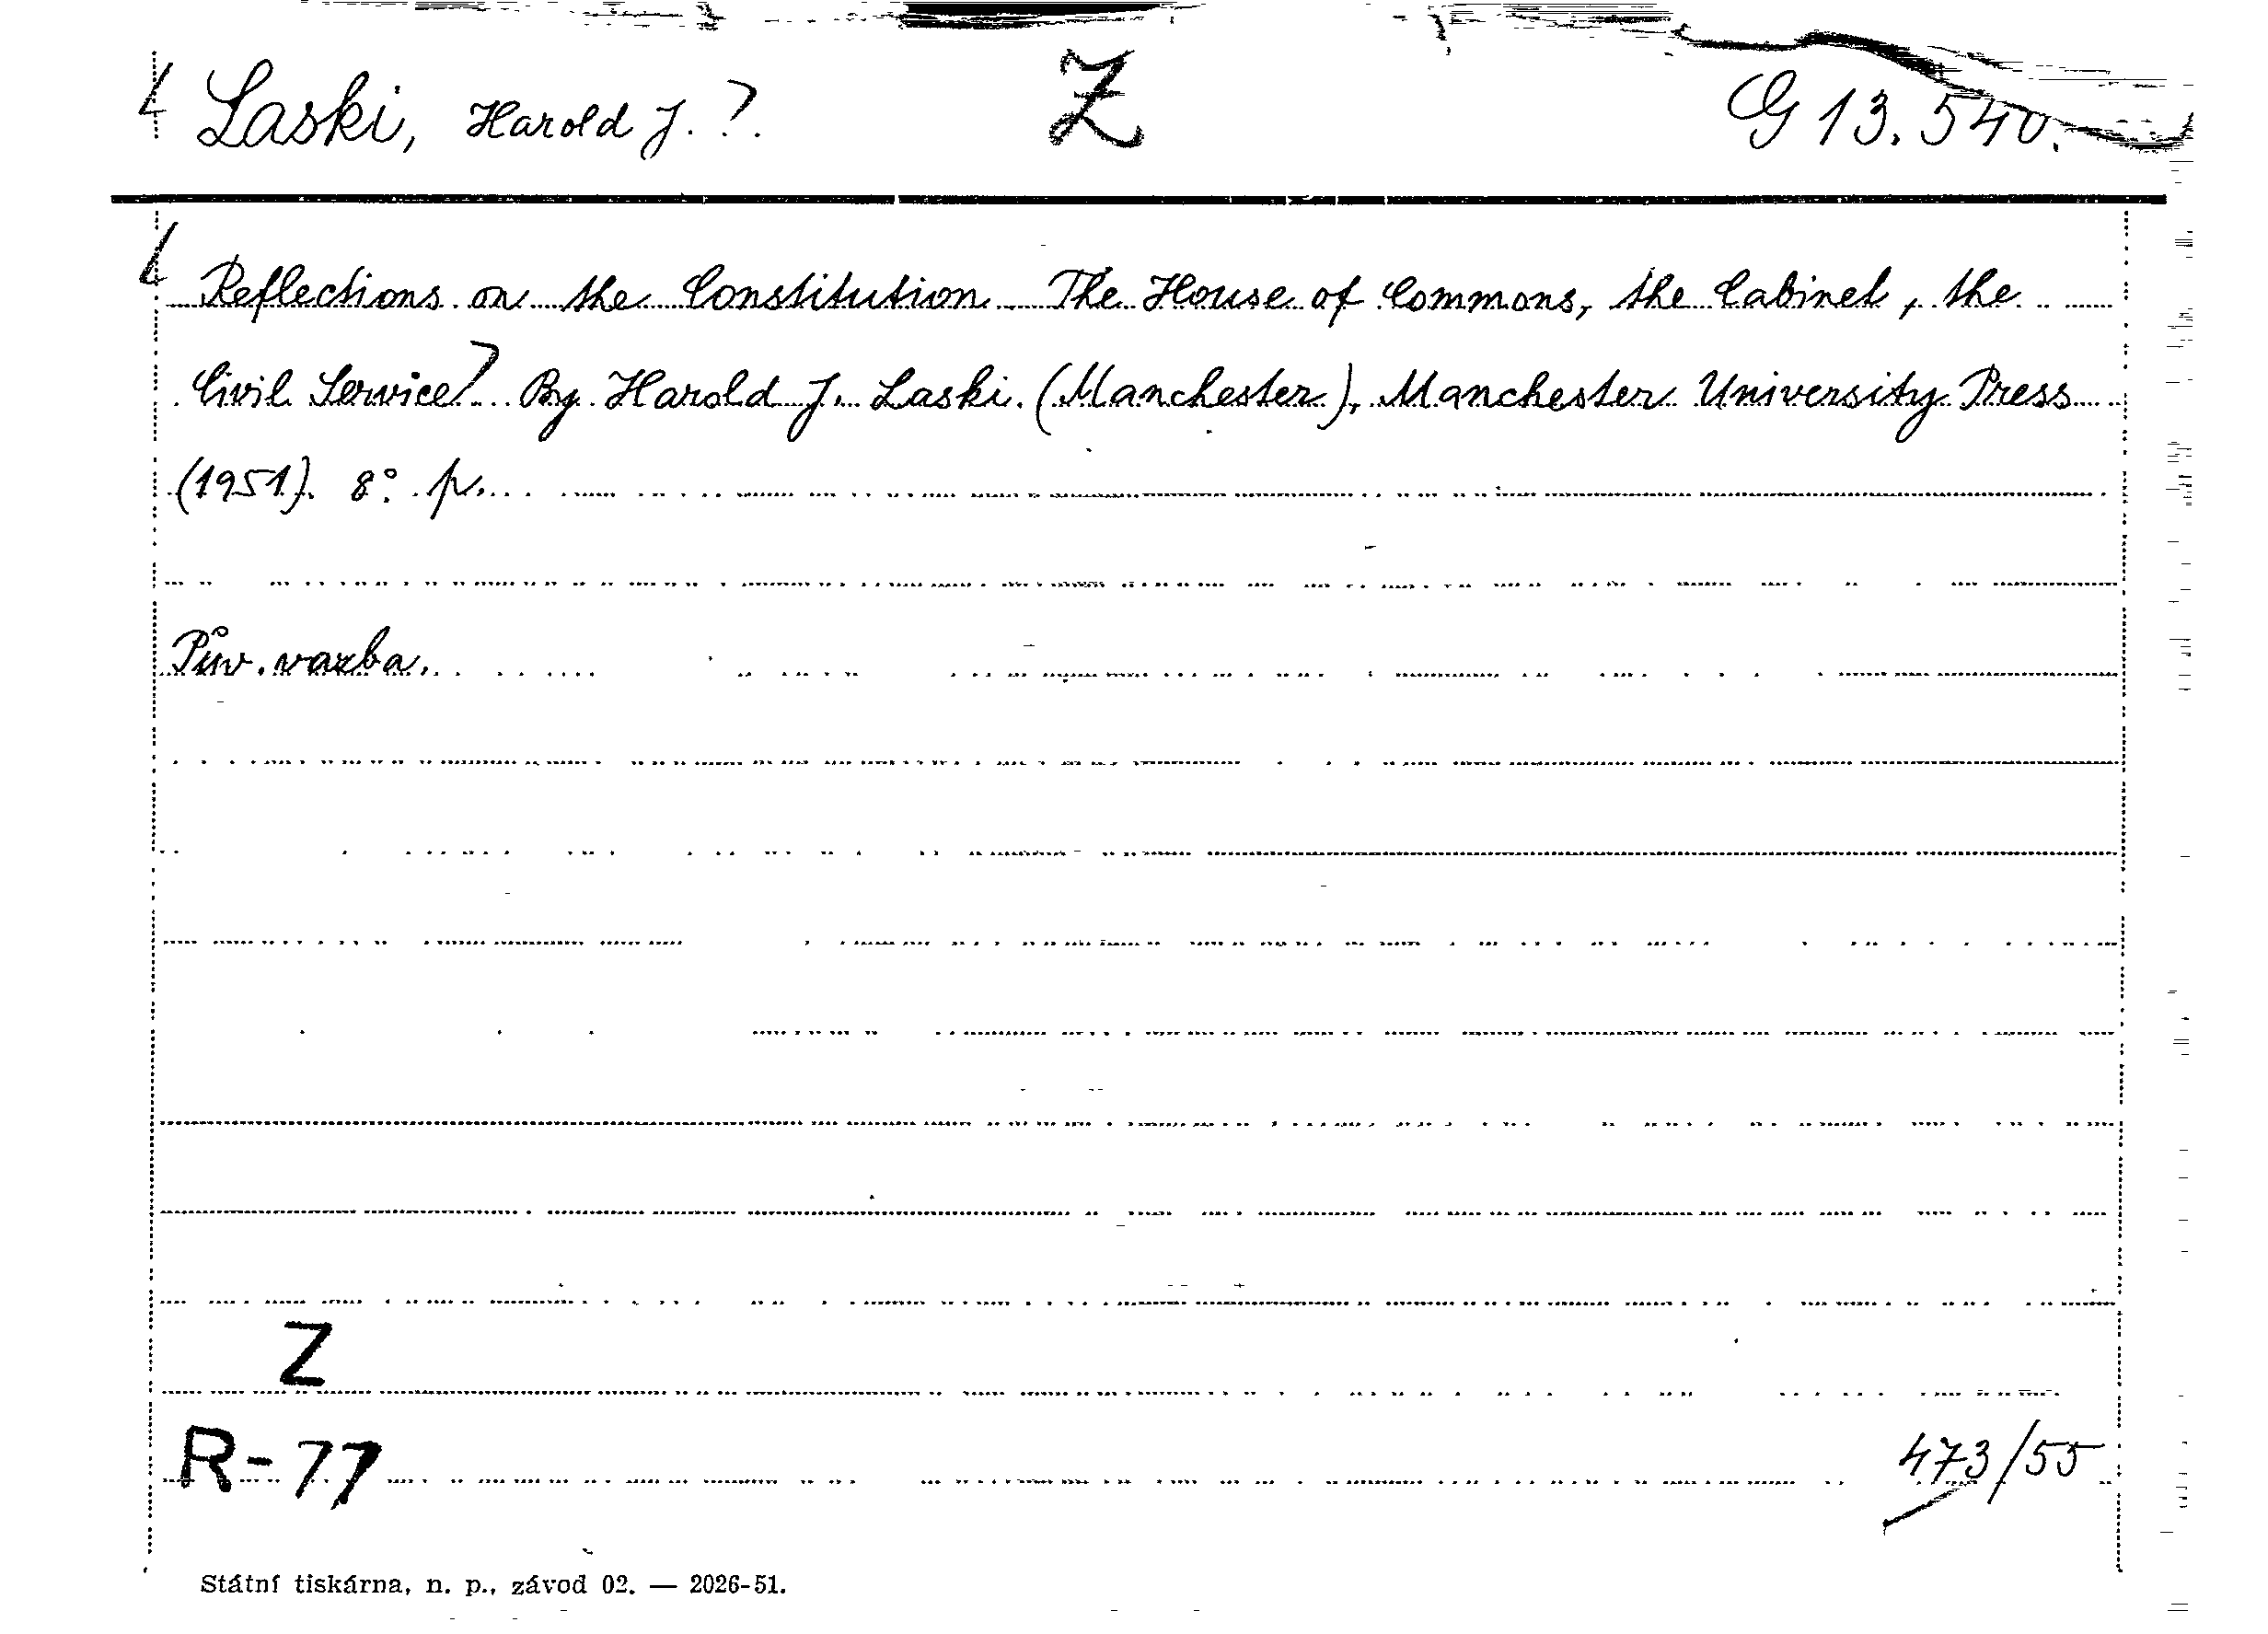 Laski, Harold J. ?. Z G 13.540.
Reflections on the Constitution. The House of Commons, the Cabinet, the
Civil Service. By Harold J. Laski. (Manchester), Manchester University Press
(1951). 8° p.
Pův. vazba.
Z
R-77 473/55
Státní tiskárna, n. p., závod 02. — 2026-51.